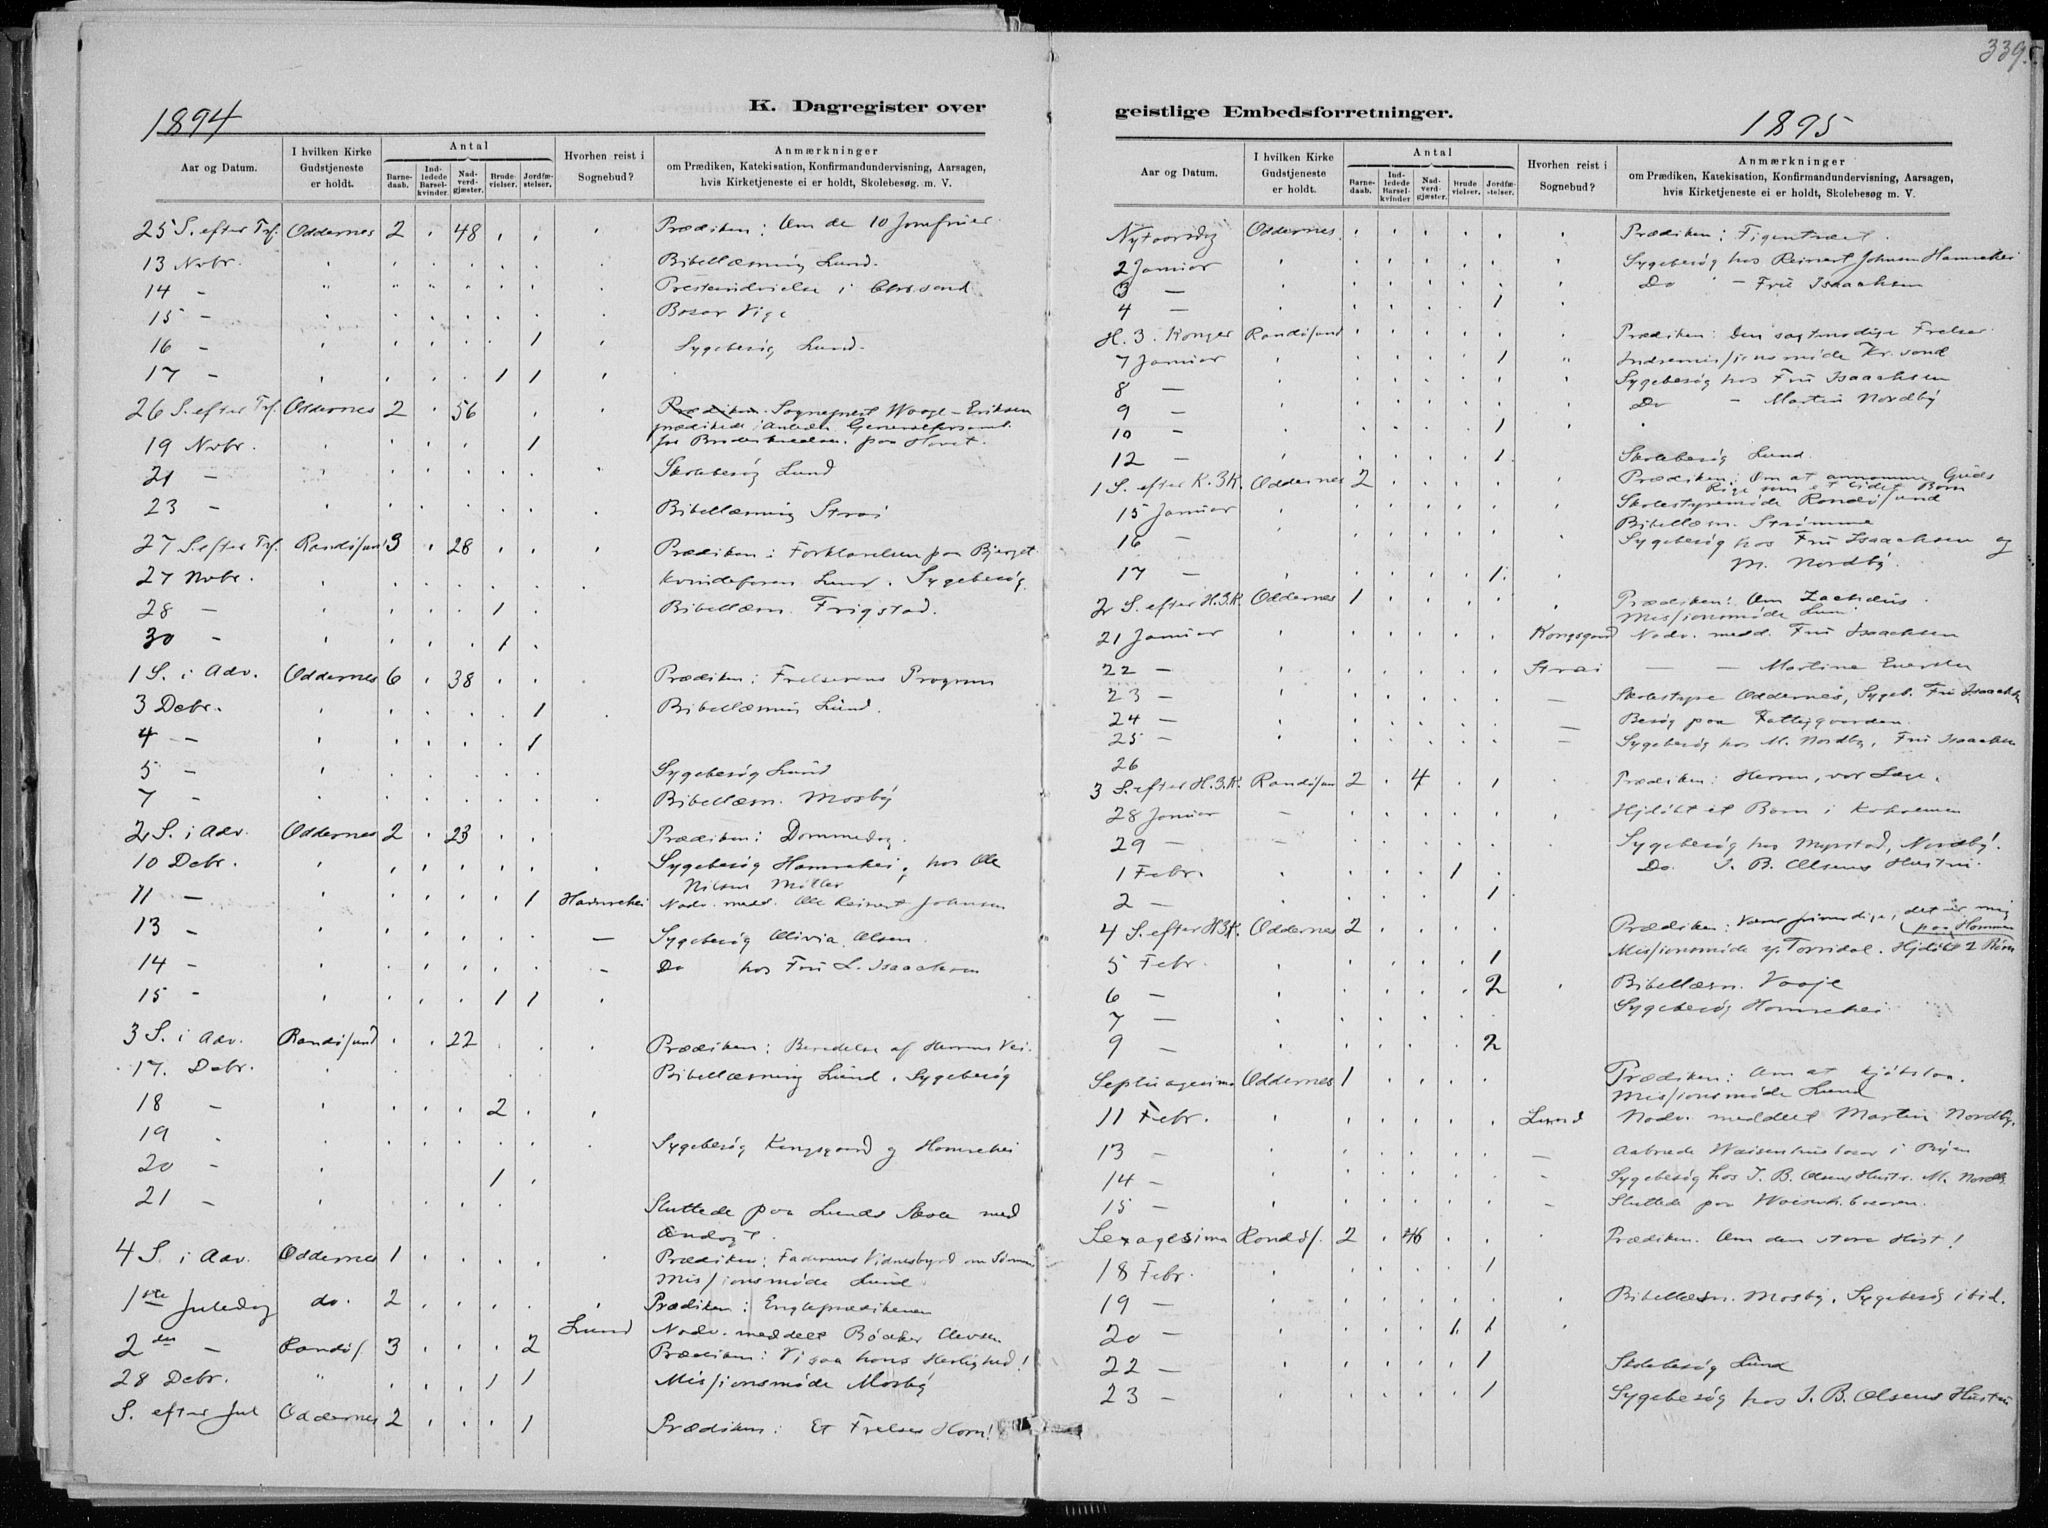 339.
1894
K. Dagregister over
Aar og Datum. I hvilken Kirke Gudstjeneste er holdt. Antal Barnedaab. Indledede Barselkvinder. Nadverdgjæster. Brudevielser. Jordfæstelser. Hvorhen reist i Sognebud? Anmærkninger om Prædiken, Katekisation, Konfirmandundervisning, Aarsagen, hvis Kirketjeneste ei er holdt, Skolebesøg m. V.
25 S. efter Trf. Oddernes 2 . 48 . . . Prædiken: Om de 10 Jomfruer.
13 Nvbr. Bibellæsning Lund.
14 - Presteindvielse i Chr.sand
15 - Basar Vige
16 - 1 Sygebesøg Lund.
17 - 1 1
26 S. efter Trf. Oddernes 2 . 56 Prædiken. Sogneprest Waage-Eriksen
prædikede i Anledn. Generalforsaml.
19 Nvbr. 1 for paa Hovet.
21 - Skolebesøg Lund
23 - Bibellæsning Strai
27 S. efter Trf. Randøsund 3 . 28 Prædiken: Forklarelsen paa Bjerget.
27 Nvbr. Kvindeforen Lund. Sygebesøg.
28 - 1 . Bibellæsn. Frigstad.
30 - 1 .
1 S. i Adv. Oddernes 6 . 38 Prædiken: Frelserens Program
3 Debr. 1 Bibellæsning Lund.
4 - 1
5 - Sygebesøg Lund
7 - Bibellæsn. Mosby
2 S. i Adv. Oddernes 2 . 23 Prædiken: Dommedag.
10 Debr. Sygebesøg Hamrehei, hos Ole
Nilsen Møller
11 - 1 Hamrehei Nadv. medd. Ole Reinert Johnsen
13 - — Sygebesøg Olivia Olsen.
14 - — Do hos Fru L. Isaachsen
15 - 1 1
3 S. i Adv. Randøsund . . 22 Prædiken: Beredelse af Herrens Vei.
17. Debr. Bibellæsning Lund. Sygebesøg
18 - 2
19 - Sygebesøg Kongsgaard og Hamrehei
20 - 1
21 - Sluttede paa Lunds Skole med
Andagt.
4 S. i Adv. Oddernes 1 Prædiken: Faderens Vidnesbyrd om Sønnen
Missionsmøde Lund.
1ste Juledag do. 2 Prædiken: Engleprædikenen
Lund Nadv. meddelt Bødker Olevsen
2den - Randøs 3 . . . 2 Prædiken: Vi saa hans Herlighed!
28 Debr. 1 1 Missionsmøde Mosby
S. efter Jul Oddernes 2 . . . 1 Prædiken: Et Frelses Horn!
geistlige Embedsforretninger.
1895
Aar og Datum. I hvilken Kirke Gudstjeneste er holdt. Antal Barnedaab. Indledede Barselkvinder Nadverdgjæster. Brudevielser. Jordfæstelser. Hvorhen reist i Sognebud? Anmærkninger om Prædiken, Katekisation, Konfirmandundervisning, Aarsagen, hvis Kirketjeneste ei er holdt, Skolebesøg m. V.
Nytaarsdag Oddernes Prædiken: Figentræet.
2 Januar Sygebesøg hos Reinert Johnsen Hamrehei
3 — Do — Fru Isaachsen
4 — 1
H. 3. Konger Randøsund Prædiken: Den sagtmodige Frelser
7 Januar 1 Indremissionsmøde Kr.sand
8 — Sygebesøg hos Fru Isaachsen
9 — Do — Martin Nordby
10 — 1
12 — 1 Skolebesøg Lund.
1 S. efter H. 3K. Oddernes 2 Prædiken: Om at annamme Guds
Rige som et lidet Barn
15 Januar Skolestyremøde Randøsund
Bibellæsn. Strømme
16 — Sygebesøg hos Fru Isaachsen og
17 — 1. M. Nordby.
2 S. efter H.3.K. Oddernes 1 Prædiken: Om Zachæus.
Missionsmøde Lun
21 Januar Kongsgaard Nadv. medd. Fru Isaachsen
22 — Strai — — Martine Evensen
23 — — Skolestyre Oddernes, Sygeb. Fru Isaachsen
24 — — Besøg paa Fattiggaarden.
25 — — Sygebesøg hos M. Nordby, Fru Isaachsen
26
3 S. efter H.3.K. Randøsun 2 . 4 . 1 Prædiken: Herren, vor Læge.
28 Januar Hjdøbt et Barn i Kokolemen
29 — Sygebesøg hos Myrstad, Nordby.
1 Febr. 1 . Do. J. B. Olsens Hustru.
2 — 1
4 S. efter H3K. Oddernes 2 Prædiken: Vær frimodige, det er mig
paa Hamren
5 Febr. 1 Missionsmøde Torridal. Hjdøbt 2 Børn
6 — 2 Bibellæsn. Vaaje
7 — Sygebesøg Hamrehei
9 — 2
Septuagesima Oddernes 1 Prædiken: Om at kjøbslaa.
Missionsmøde Lund
11 Febr. Lund Nadv. meddelt Martin Nordby.
13 — — Aabnede Waisenhusbasar i Byen
14 — Sygebesøg hos J. B. Olsens Hustr. M. Nordb.
15 — — Sluttede paa Waisenh.basaren.
Sexagesima Randøs. 2 . 46 Prædiken. Om den store Høst!
18 Febr. 1
19 — Bibellæsn. Mosby, Sygebesøg ibid.
20 — 1 1
22 — 1 Skolebesøg Lund
23 — 1 Sygebesøg hos J. B. Olsens Hustru